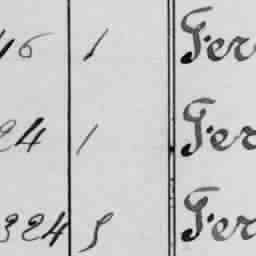 46 1 Fer
24 1 Fer
324 5 Fer